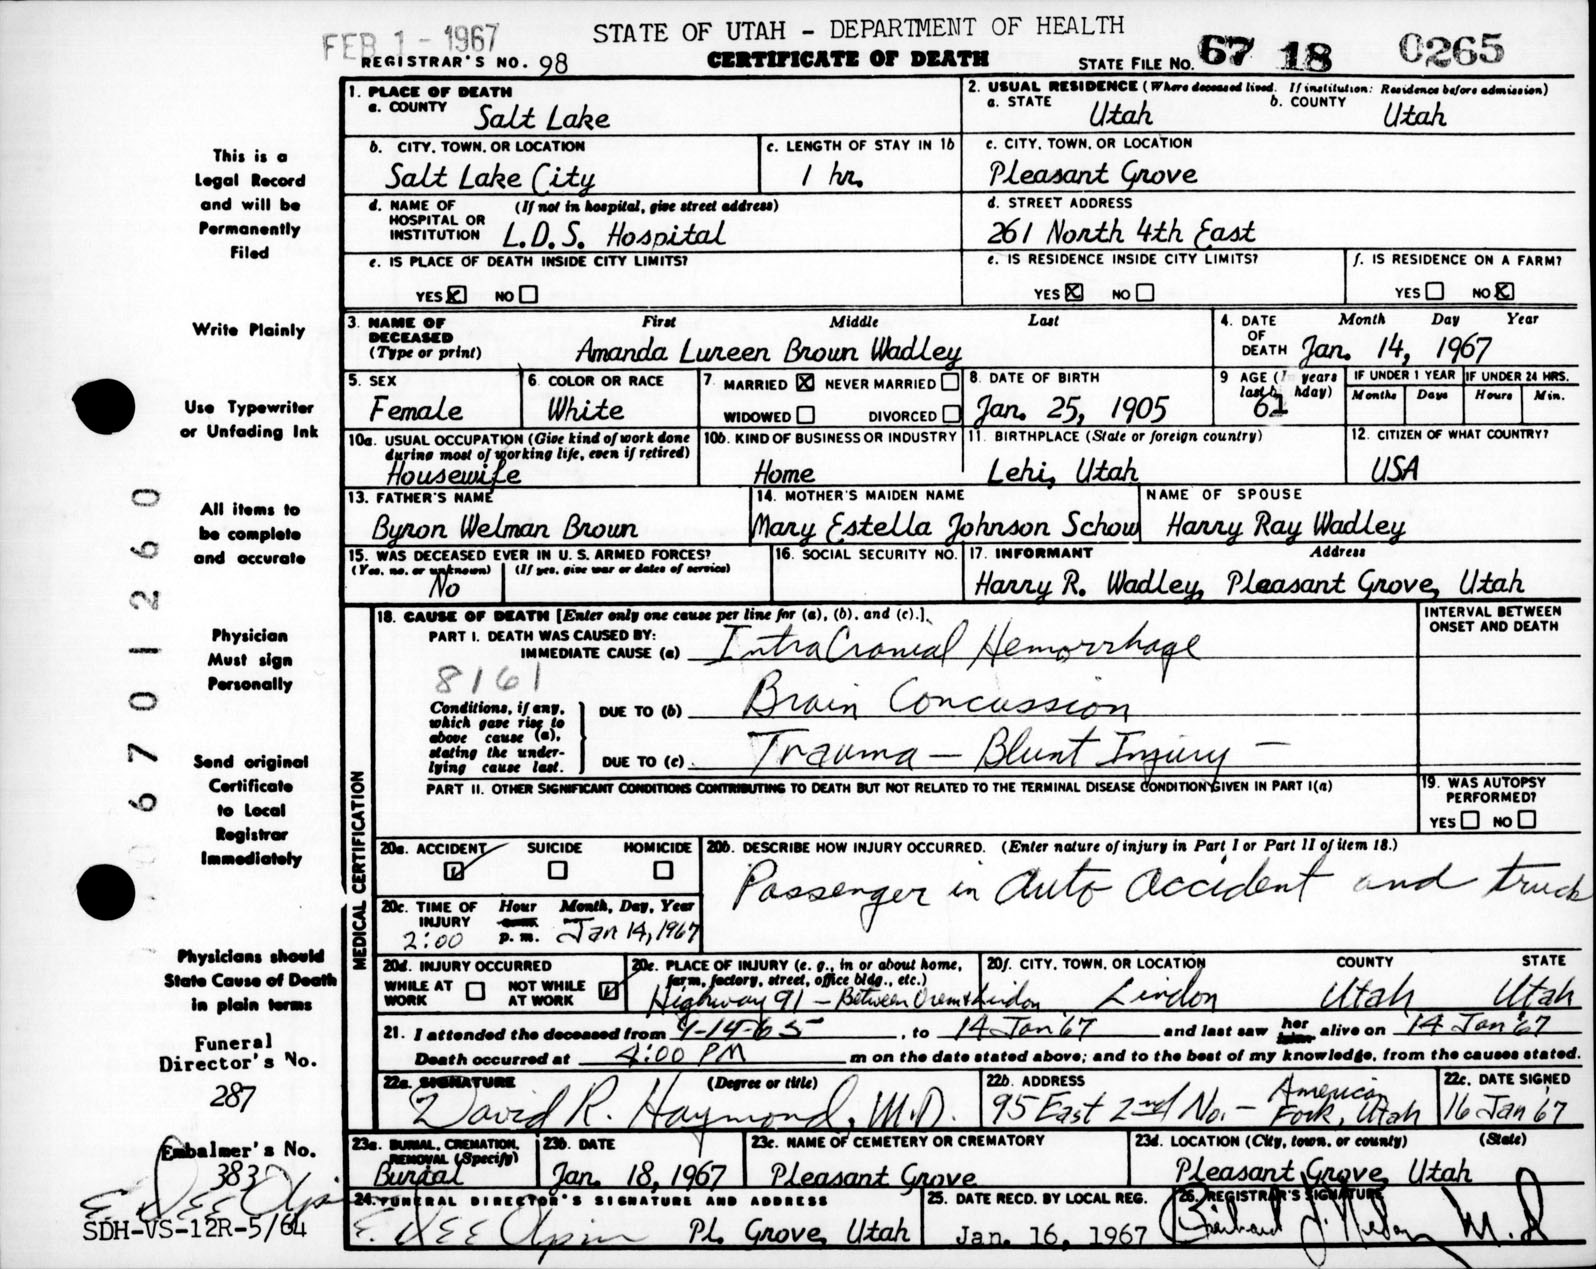 FEB 1 - 1967
STATE OF UTAH - DEPARTMENT OF HEALTH
REGISTRAR'S NO. 98
CERTIFICATE OF DEATH
STATE FILE NO. 67 18 0265
This is a
Legal Record
and will be
Permanently
Filed
Write Plainly
Use Typewriter
or Unfading Ink
All items to
be complete
and accurate
Physician
Must sign
Personally
Send original
Certificate
to Local
Registrar
Immediately
Physicians should
State Cause of Death
in plain terms
Funeral
Director's No.
287
Embalmer's No.
383
SDH-VS-12R-5/64
0 6 7 0 1 2 6 0
1. PLACE OF DEATH
a. COUNTY Salt Lake
2. USUAL RESIDENCE (Where deceased lived. If institution: Residence before admission)
a. STATE Utah b. COUNTY Utah
b. CITY, TOWN, OR LOCATION
Salt Lake City
c. LENGTH OF STAY IN 1b
1 hr.
c. CITY, TOWN, OR LOCATION
Pleasant Grove
d. NAME OF (If not in hospital, give street address)
HOSPITAL OR
INSTITUTION L.D.S. Hospital
d. STREET ADDRESS
261 North 4th East
e. IS PLACE OF DEATH INSIDE CITY LIMITS?
YES X NO
e. IS RESIDENCE INSIDE CITY LIMITS?
YES X NO
f. IS RESIDENCE ON A FARM?
YES NO X
3. NAME OF First Middle Last
DECEASED
(Type or print) Amanda Lureen Brown Wadley
4. DATE Month Day Year
OF
DEATH Jan. 14, 1967
5. SEX
Female
6. COLOR OR RACE
White
7. MARRIED X NEVER MARRIED
WIDOWED DIVORCED
8. DATE OF BIRTH
Jan. 25, 1905
9 AGE (In years
last birthday)
61
IF UNDER 1 YEAR IF UNDER 24 HRS.
Months Days Hours Min.
10a. USUAL OCCUPATION (Give kind of work done
during most of working life, even if retired)
Housewife
10b. KIND OF BUSINESS OR INDUSTRY
Home
11. BIRTHPLACE (State or foreign country)
Lehi, Utah
12. CITIZEN OF WHAT COUNTRY?
USA
13. FATHER'S NAME
Byron Welman Brown
14. MOTHER'S MAIDEN NAME
Mary Estella Johnson Schow
NAME OF SPOUSE
Harry Ray Wadley
15. WAS DECEASED EVER IN U. S. ARMED FORCES?
(Yes, no, or unknown) (If yes, give war or dates of service)
No
16. SOCIAL SECURITY NO.
17. INFORMANT Address
Harry R. Wadley, Pleasant Grove, Utah
MEDICAL CERTIFICATION
18. CAUSE OF DEATH [Enter only one cause per line for (a), (b), and (c).]
PART I. DEATH WAS CAUSED BY:
IMMEDIATE CAUSE (a) IntraCranial Hemorrhage
8161
Conditions, if any,
which gave rise to
above cause (a),
stating the under-
lying cause last.
DUE TO (b) Brain Concussion
DUE TO (c) Trauma - Blunt Injury -
INTERVAL BETWEEN
ONSET AND DEATH
PART II. OTHER SIGNIFICANT CONDITIONS CONTRIBUTING TO DEATH BUT NOT RELATED TO THE TERMINAL DISEASE CONDITION GIVEN IN PART I(a)
19. WAS AUTOPSY
PERFORMED?
YES NO
20a. ACCIDENT SUICIDE HOMICIDE
20b. DESCRIBE HOW INJURY OCCURRED. (Enter nature of injury in Part I or Part II of item 18.)
Passenger in auto accident and truck
20c. TIME OF Hour Month, Day, Year
INJURY
2:00 p. m. Jan 14, 1967
20d. INJURY OCCURRED
WHILE AT
WORK
NOT WHILE
AT WORK
20e. PLACE OF INJURY (e. g., in or about home,
farm, factory, street, office bldg., etc.)
Highway 91 - Between Orem & Lindon
20f. CITY, TOWN, OR LOCATION COUNTY STATE
Lindon Utah Utah
21. I attended the deceased from 9-14-65, to 14 Jan '67 and last saw her alive on 14 Jan '67
Death occurred at 4:00 PM m on the date stated above; and to the best of my knowledge, from the causes stated.
22a. SIGNATURE (Degree or title)
David R. Haymond, M.D.
22b. ADDRESS
95 East 2nd No. - American
Fork, Utah
22c. DATE SIGNED
16 Jan '67
23a. BURIAL, CREMATION,
REMOVAL (Specify)
Burial
23b. DATE
Jan. 18, 1967
23c. NAME OF CEMETERY OR CREMATORY
Pleasant Grove
23d. LOCATION (City, town, or county) (State)
Pleasant Grove, Utah
24. FUNERAL DIRECTOR'S SIGNATURE AND ADDRESS
Pl. Grove, Utah
25. DATE RECD. BY LOCAL REG.
Jan. 16, 1967
26. REGISTRAR'S SIGNATURE
M.D.